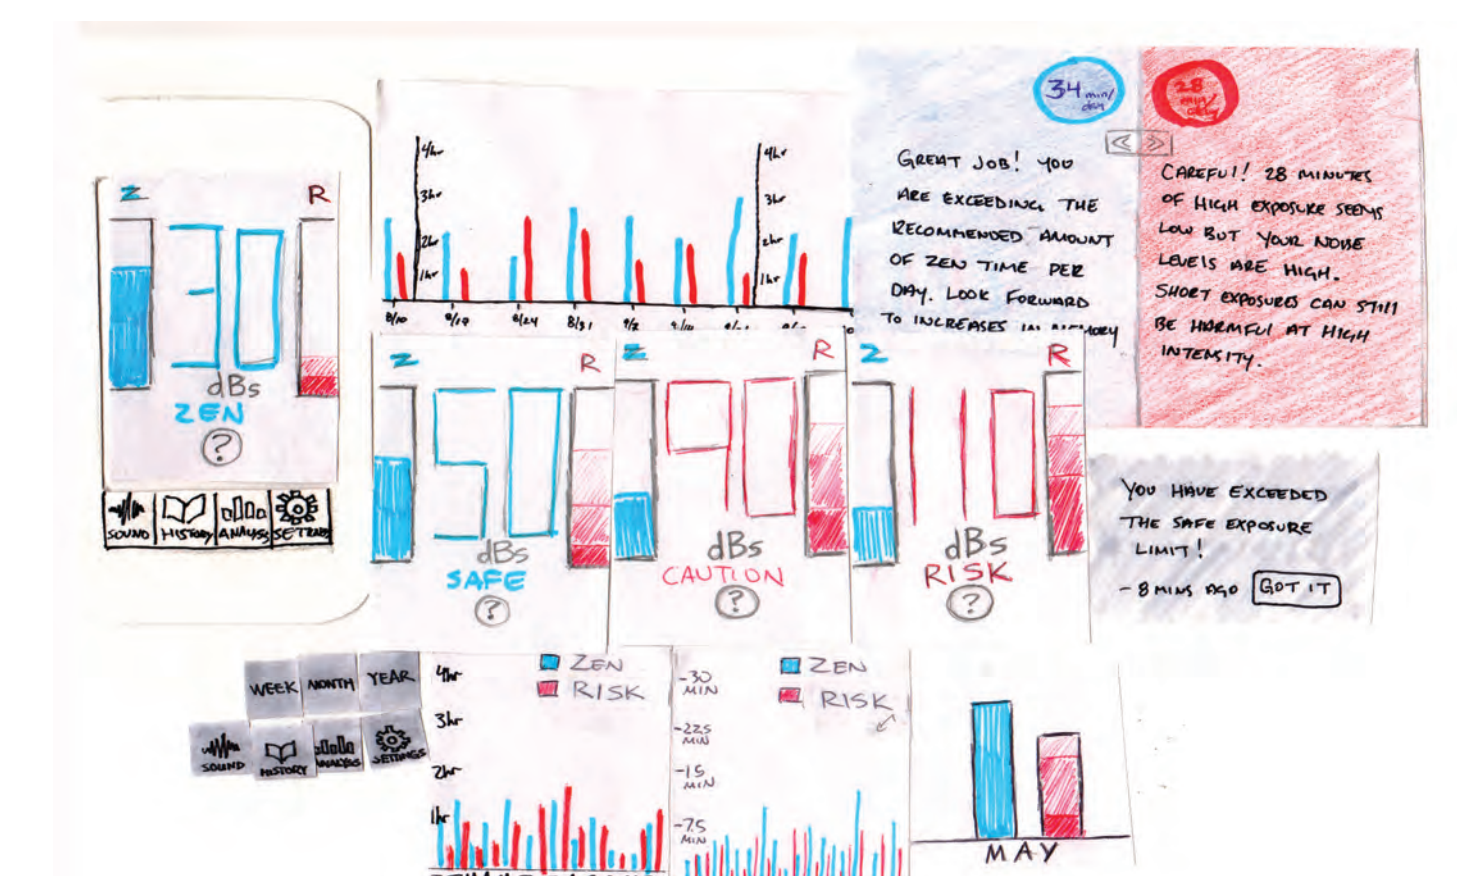 Z
R
30
dBs
ZEN
?
SOUND
HISTORY
ANALYSIS
SETTINGS
4hr
3hr
2hr
1hr
4hr
3hr
2hr
1hr
8/10
8/17
8/24
8/31
9/2
34 min/
day
GREAT JOB! YOU
ARE EXCEEDING THE
RECOMMENDED AMOUNT
OF ZEN TIME PER
DAY. LOOK FORWARD
TO INCREASES IN MEMORY
28
min/
day
CAREFUL! 28 MINUTES
OF HIGH EXPOSURE SEEMS
LOW BUT YOUR NOISE
LEVELS ARE HIGH.
SHORT EXPOSURES CAN STILL
BE HARMFUL AT HIGH
INTENSITY.
Z
R
50
dBs
SAFE
?
Z
R
90
dBs
CAUTION
?
Z
R
110
dBs
RISK
?
YOU HAVE EXCEEDED
THE SAFE EXPOSURE
LIMIT!
- 8 MINS AGO GOT IT
WEEK
MONTH
YEAR
SOUND
HISTORY
ANALYSIS
SETTINGS
ZEN
RISK
4hr
3hr
2hr
1hr
ZEN
RISK
-30
MIN
-22.5
MIN
-15
MIN
-7.5
MIN
MAY